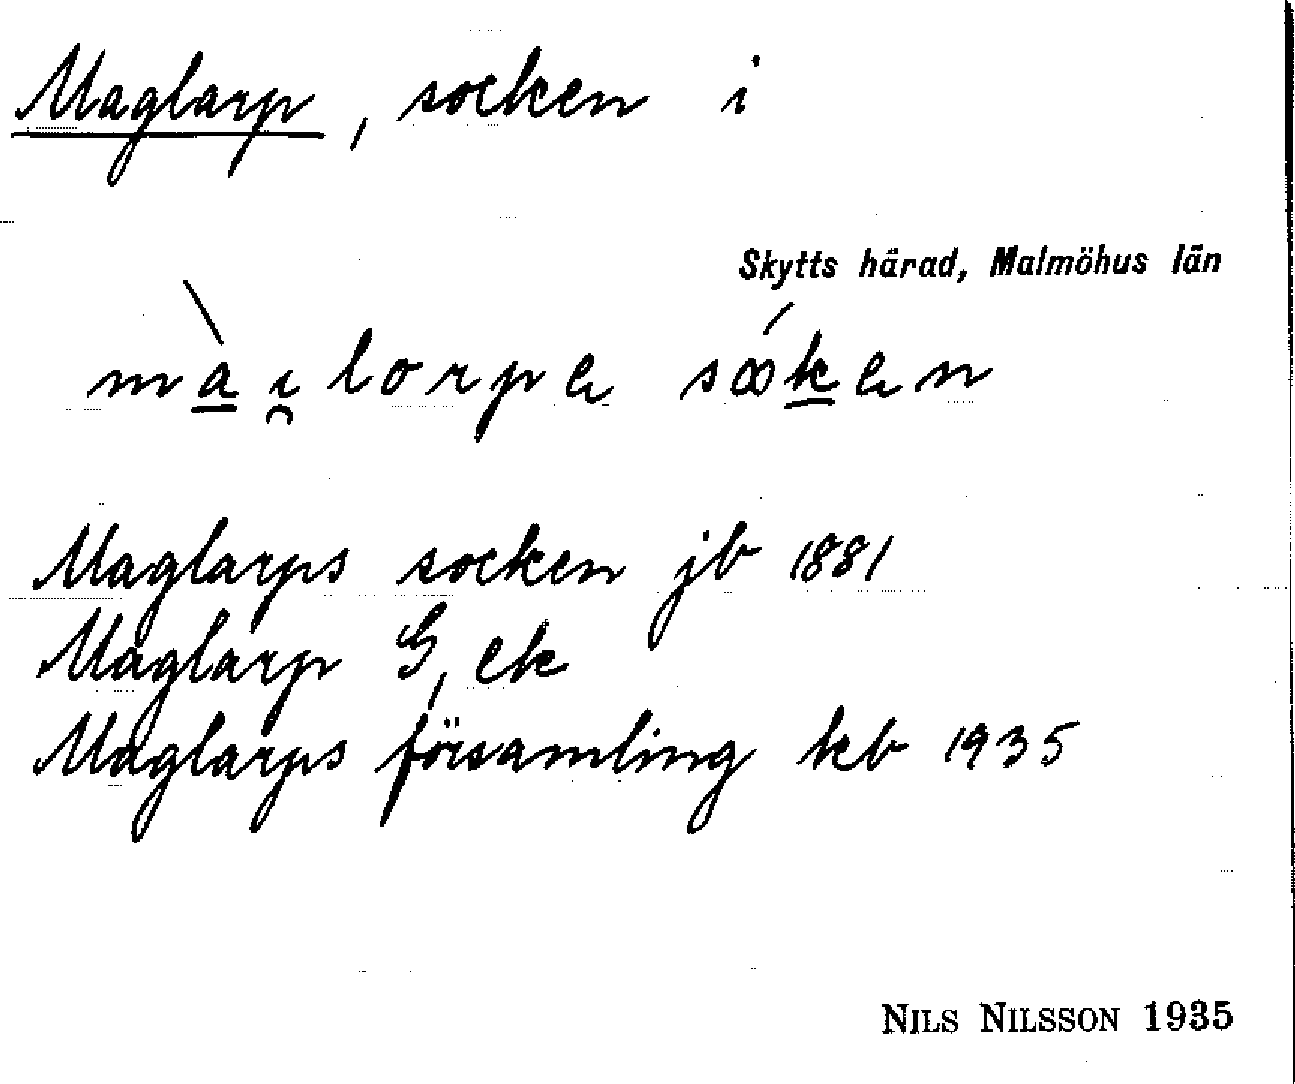 Maglarp, socken i
Skytts härad, Malmöhus län
màı̯lorpə sǿkən
Maglarps socken jb 1881
Maglarp G, ek
Maglarps församling kb 1935
NILS NILSSON 1935